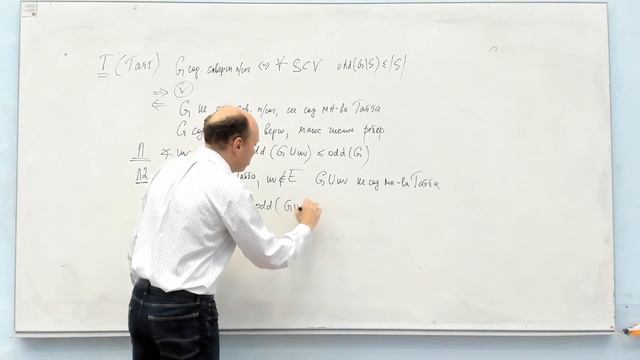 T (Татт) G сод. соверш. п/соч ⇔ ∀ S⊂V odd(G\S) ≤ |S|
⇒ V
⇐
G не сов. п/соч, не сод мн-ва Татта
G верш, макс числом ребер
Л odd(G∪uv) ≤ odd(G)
Л2 Татта, uv∉E G∪uv не сод мн-ва Татта
odd(G\